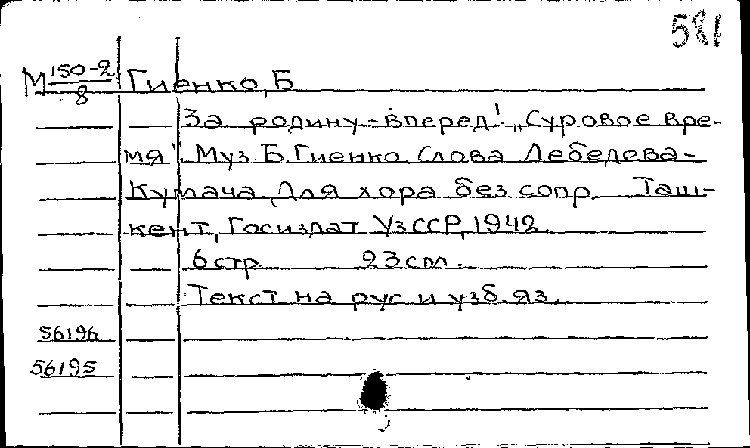 581
М 150-2/8 Гиенко, Б
За родину - вперед! „Суровое вре-
мя". Муз. Б. Гиенко. Слова Лебедева-
Кумача. Для хора без сопр. Таш-
кент, Госиздат УзССР, 1942
6 стр. 23 см.
Текст на рус и узб. яз.
56196
56195